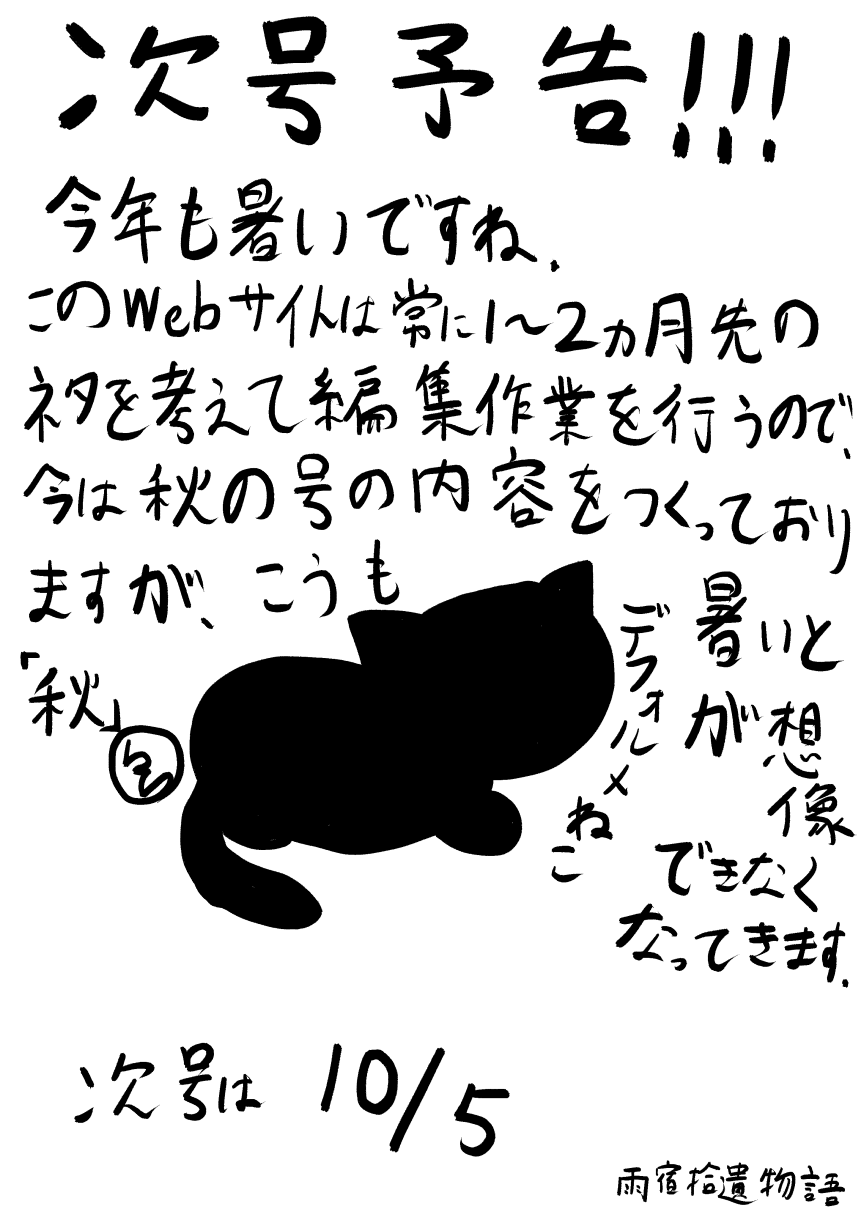 次号予告!!!
今年も暑いですね.
このWebサイトは常に1〜2ヵ月先の
ネタを考えて編集作業を行うので、
今は秋の号の内容をつくっており
ますが、こうも
暑いと
「秋」
が想像
できなく
なってきます.
デフォルメ
ねこ
次号は 10/5
雨宿拾遺物語